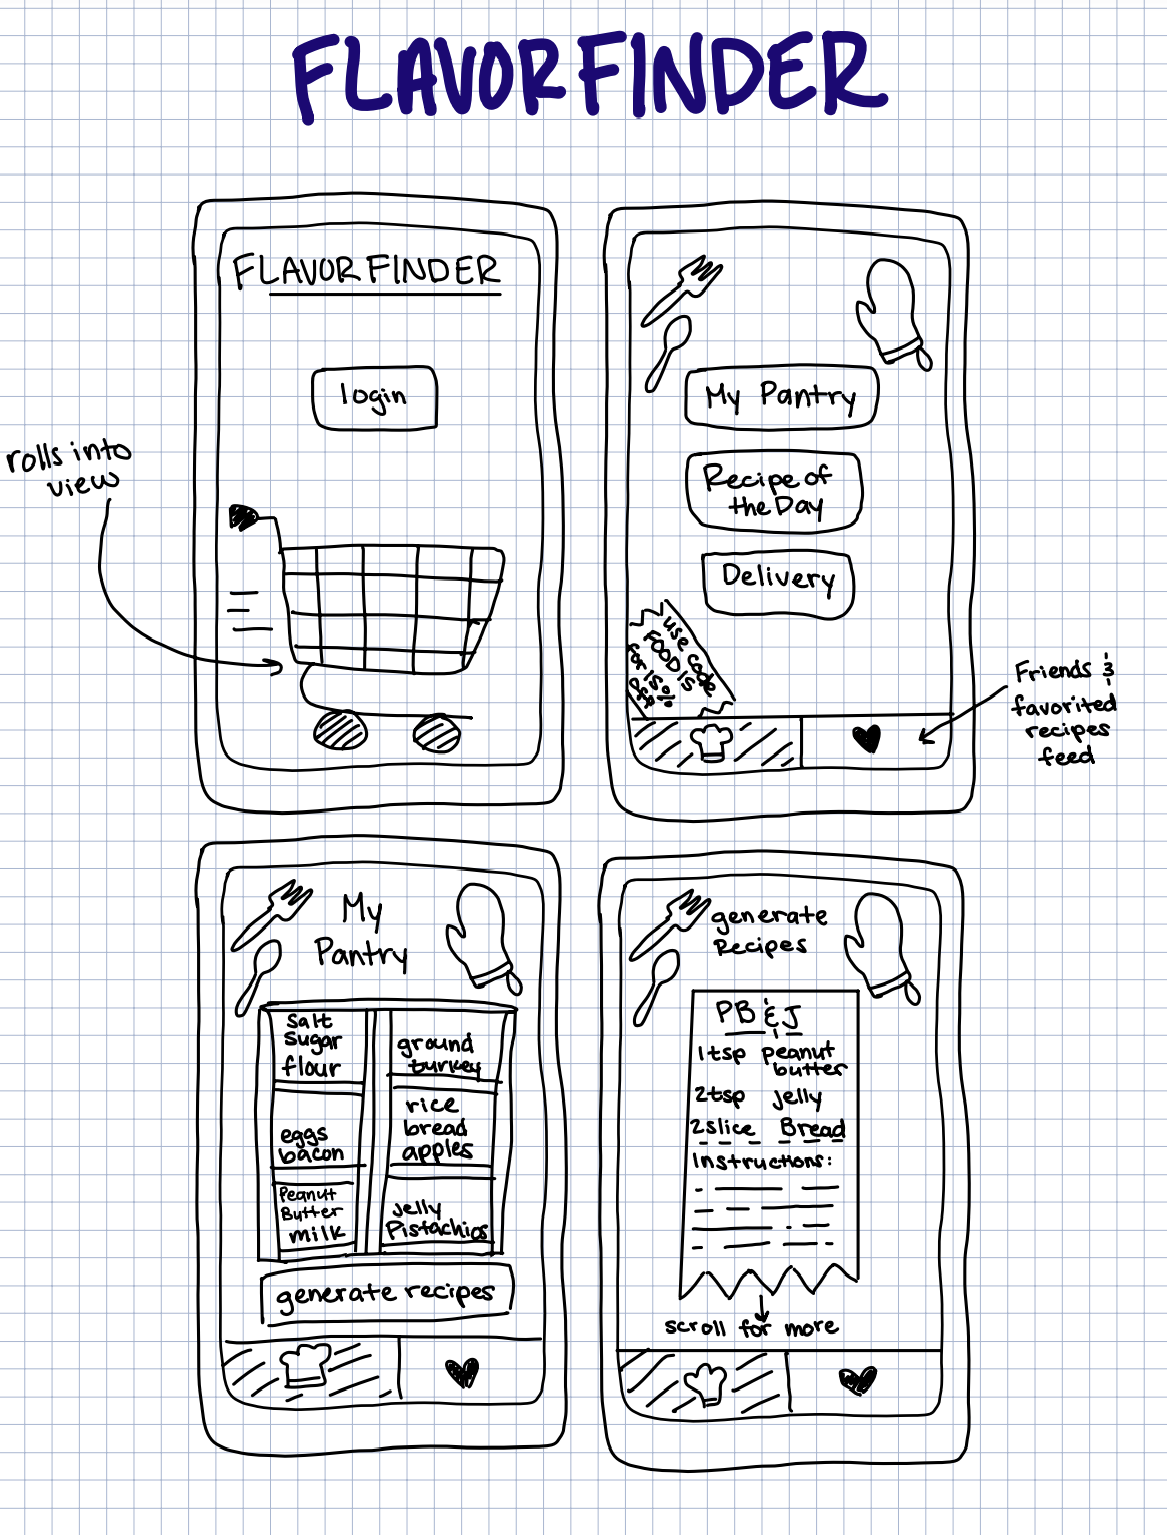 FLAVORFINDER
FLAVORFINDER
login
rolls into
view
My Pantry
Recipe of
the Day
Delivery
use code
FOOD15
for 15%
off
Friends &
favorited
recipes
feed
My
Pantry
salt
sugar
flour
eggs
bacon
Peanut
Butter
milk
ground
turkey
rice
bread
apples
jelly
Pistachios
generate recipes
generate
Recipes
PB & J
1 tsp peanut
butter
2 tsp jelly
2 slice Bread
Instructions:
scroll for more